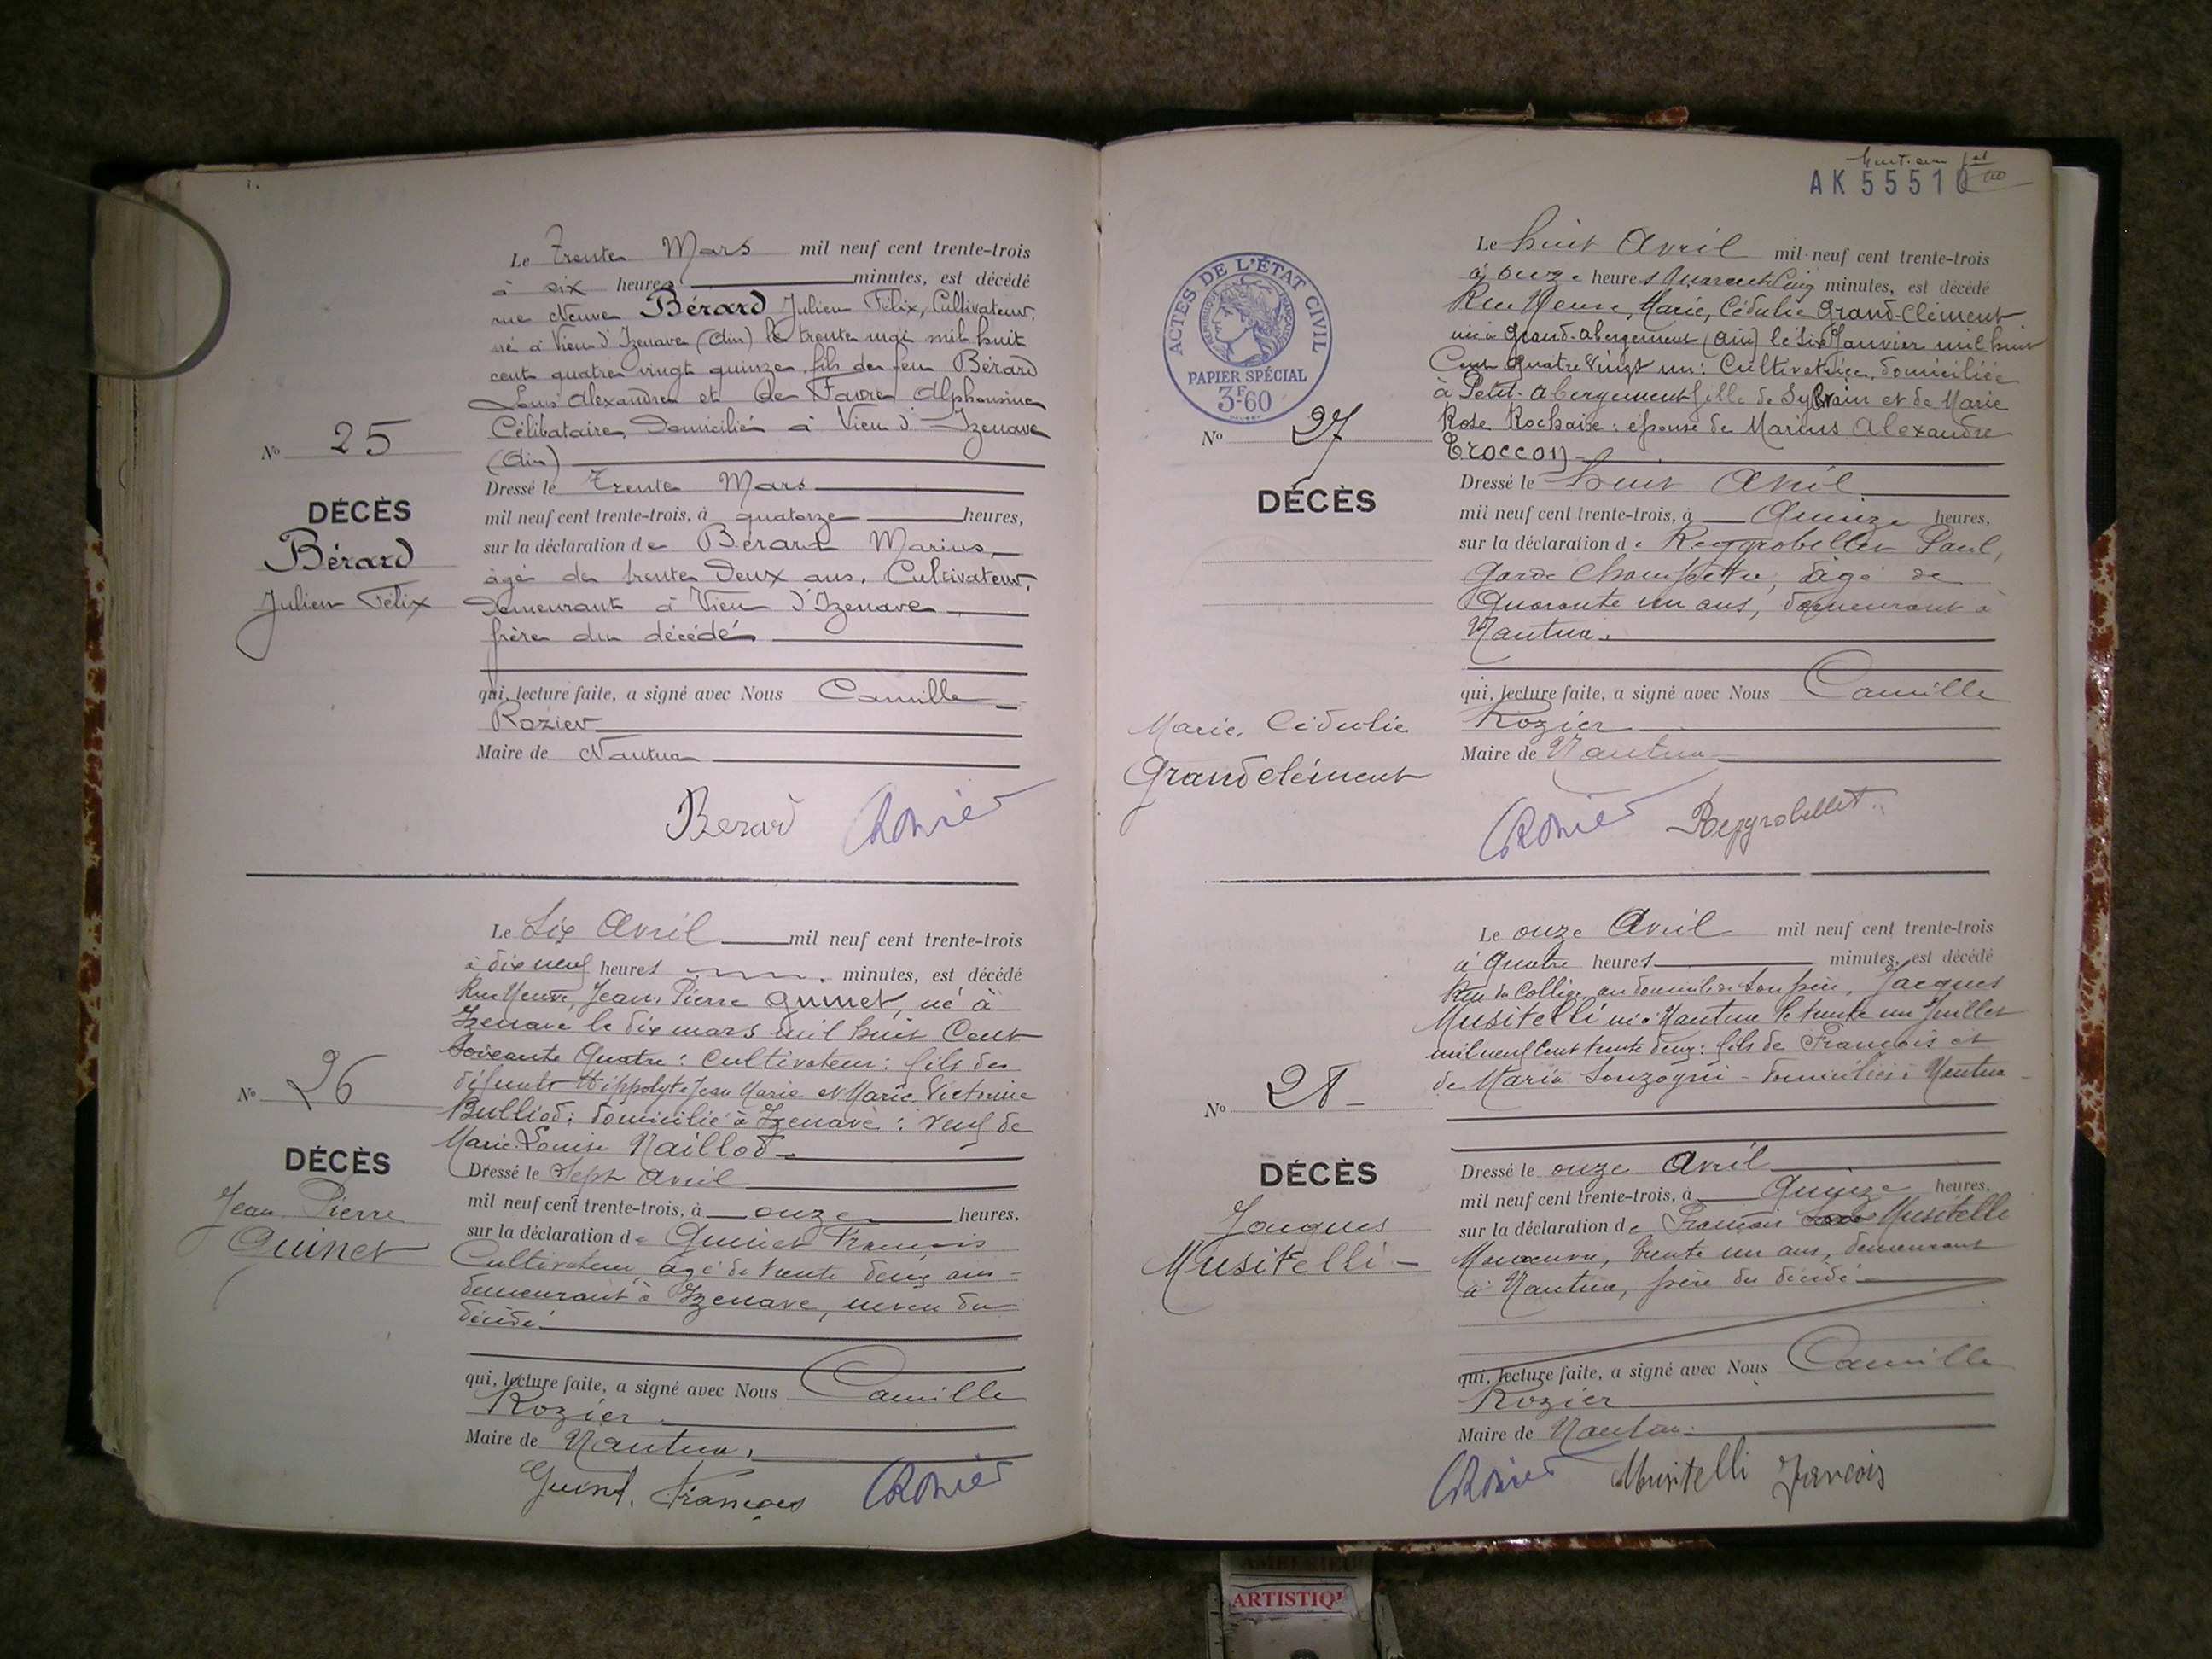 Le Trente Mars mil neuf cent trente-trois
à six heures minutes, est décédé
rue Neuve Bérard Julien Félix, Cultivateur,
né à Vieu d'Izenave (Ain) le trente mai mil huit
cent quatre vingt quinze, fils de feu Bérard
Louis Alexandre et de Favre Alphonsine
Célibataire, Domicilié à Vieu d'Izenave
(Ain)
No 25
DÉCÈS
Bérard
Julien Félix
Dressé le Trente Mars
mil neuf cent trente-trois, à quatorze heures,
sur la déclaration de Bérard Marius,
âgé de trente deux ans, Cultivateur,
Demeurant à Vieu d'Izenave
frère du décédé
qui, lecture faite, a signé avec Nous Camille
Rozier
Maire de Nantua
Berard Rozier
Le Six Avril mil neuf cent trente-trois
à dix neuf heures minutes, est décédé
Rue Neuve, Jean, Pierre Guinet, né à
Izenave le dix mars mil huit Cent
Soixante Quatre : Cultivateur : fils des
défunts Hippolyte Jean Marie et Marie Victorine
Bulliod ; domicilié à Izenave : veuf de
Marie Louise Naillod
No 26
DÉCÈS
Jean Pierre
Guinet
Dressé le Sept Avril
mil neuf cent trente-trois, à onze heures,
sur la déclaration de Guinet François
Cultivateur, âgé de trente deux ans
demeurant à Izenave, neveu du
décédé
qui, lecture faite, a signé avec Nous Camille
Rozier
Maire de Nantua,
Guinet François Rozier
AK 55510
ACTES DE L'ÉTAT CIVIL
PAPIER SPÉCIAL
3F60
Le huit Avril mil neuf cent trente-trois
à onze heures Quarante Cinq minutes, est décédé
Rue Neuve, Marie, Cédulie Grand-Clément
née à Grand-Abergement (Ain) le six Janvier mil huit
Cent Quatre Vingt un : Cultivatrice, domiciliée
à Petit-Abergement fille de Sylvain et de Marie
Rose Rochaix : épouse de Marius Alexandre
Troccon
No 27
DÉCÈS
Marie, Cédulie
Grandclément
Dressé le huit Avril
mil neuf cent trente-trois, à Quinze heures,
sur la déclaration de Reygrobellet Paul,
Garde Champêtre, âgé de
Quarante un ans, demeurant à
Nantua.
qui, lecture faite, a signé avec Nous Camille
Rozier
Maire de Nantua
Rozier Reygrobellet
Le onze Avril mil neuf cent trente-trois
à Quatre heures minutes, est décédé
Rue du Collège, au domicile de son père, Jacques
Musitelli né à Nantua le trente un Juillet
mil neuf Cent trente deux : fils de François et
de Maria Sonzogni - domiciliés à Nantua
No 28
DÉCÈS
Jacques
Musitelli
Dressé le onze Avril
mil neuf cent trente-trois, à Quinze heures,
sur la déclaration de François Musitelle
Manœuvre, trente un ans, demeurant
à Nantua, père du décédé
qui, lecture faite, a signé avec Nous Camille
Rozier
Maire de Nantua
Rozier Musitelli François
ARTISTIQ